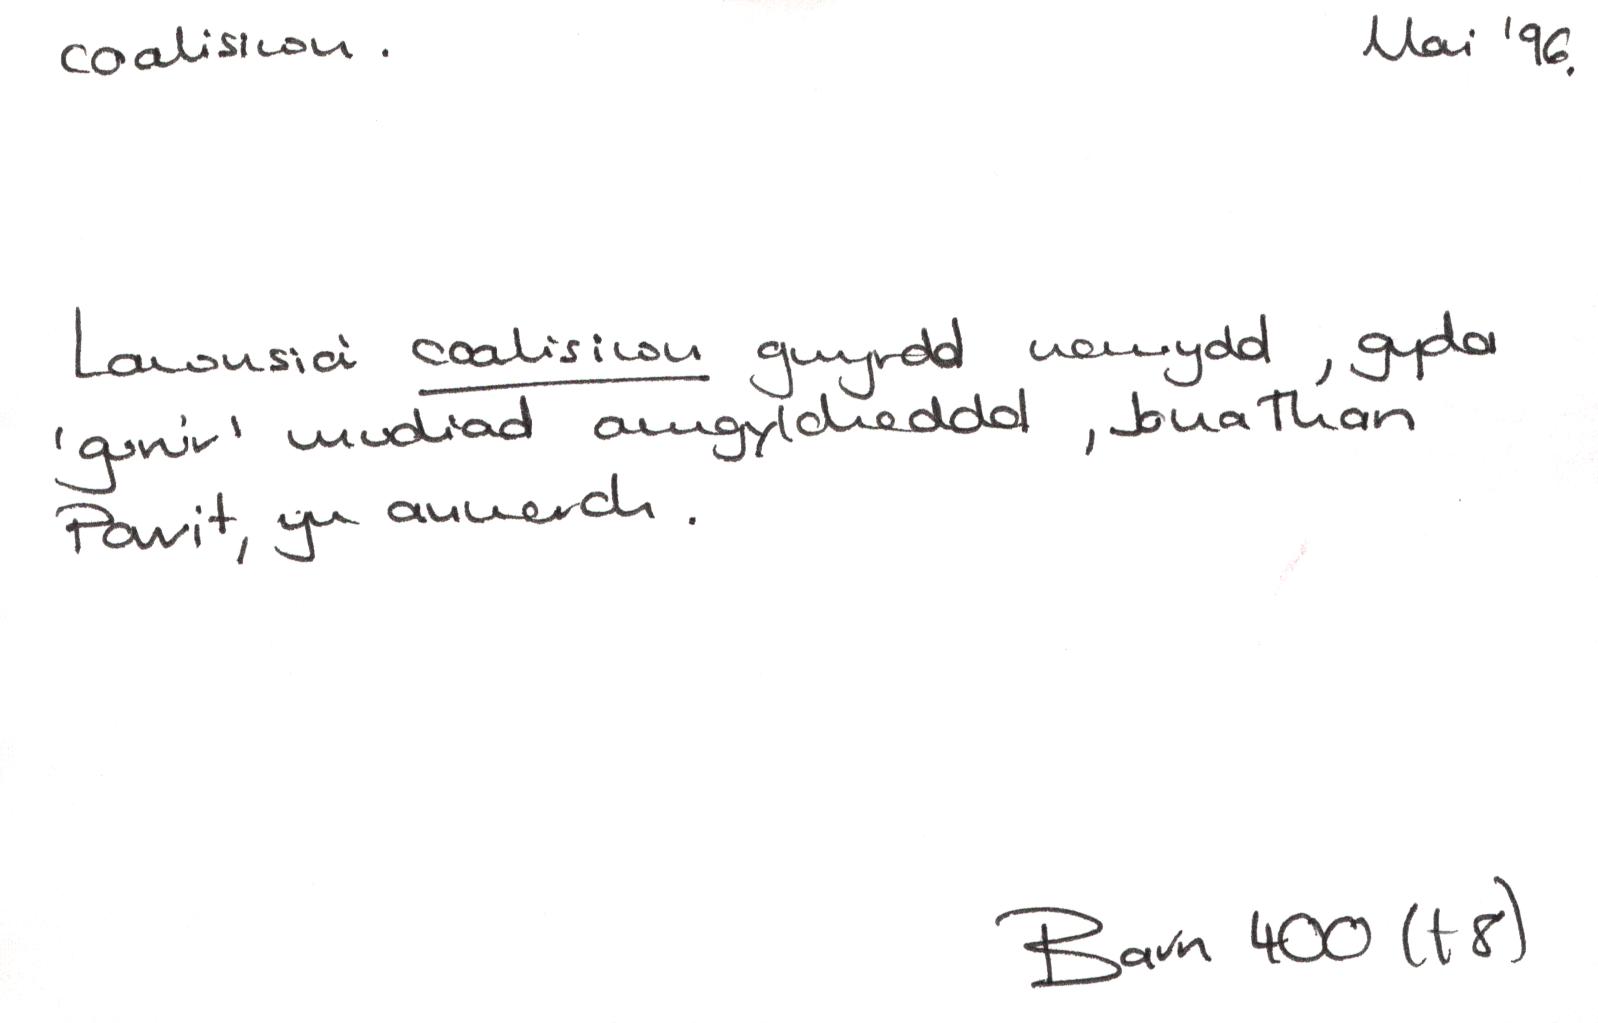 coalisiwn. Mai '96.
Lawnsio coalisiwn gwyrdd newydd, gyda
'gwr' mudiad amgylcheddol, Jonathan
Porrit, yn annerch.
Barn 400 (t 8)